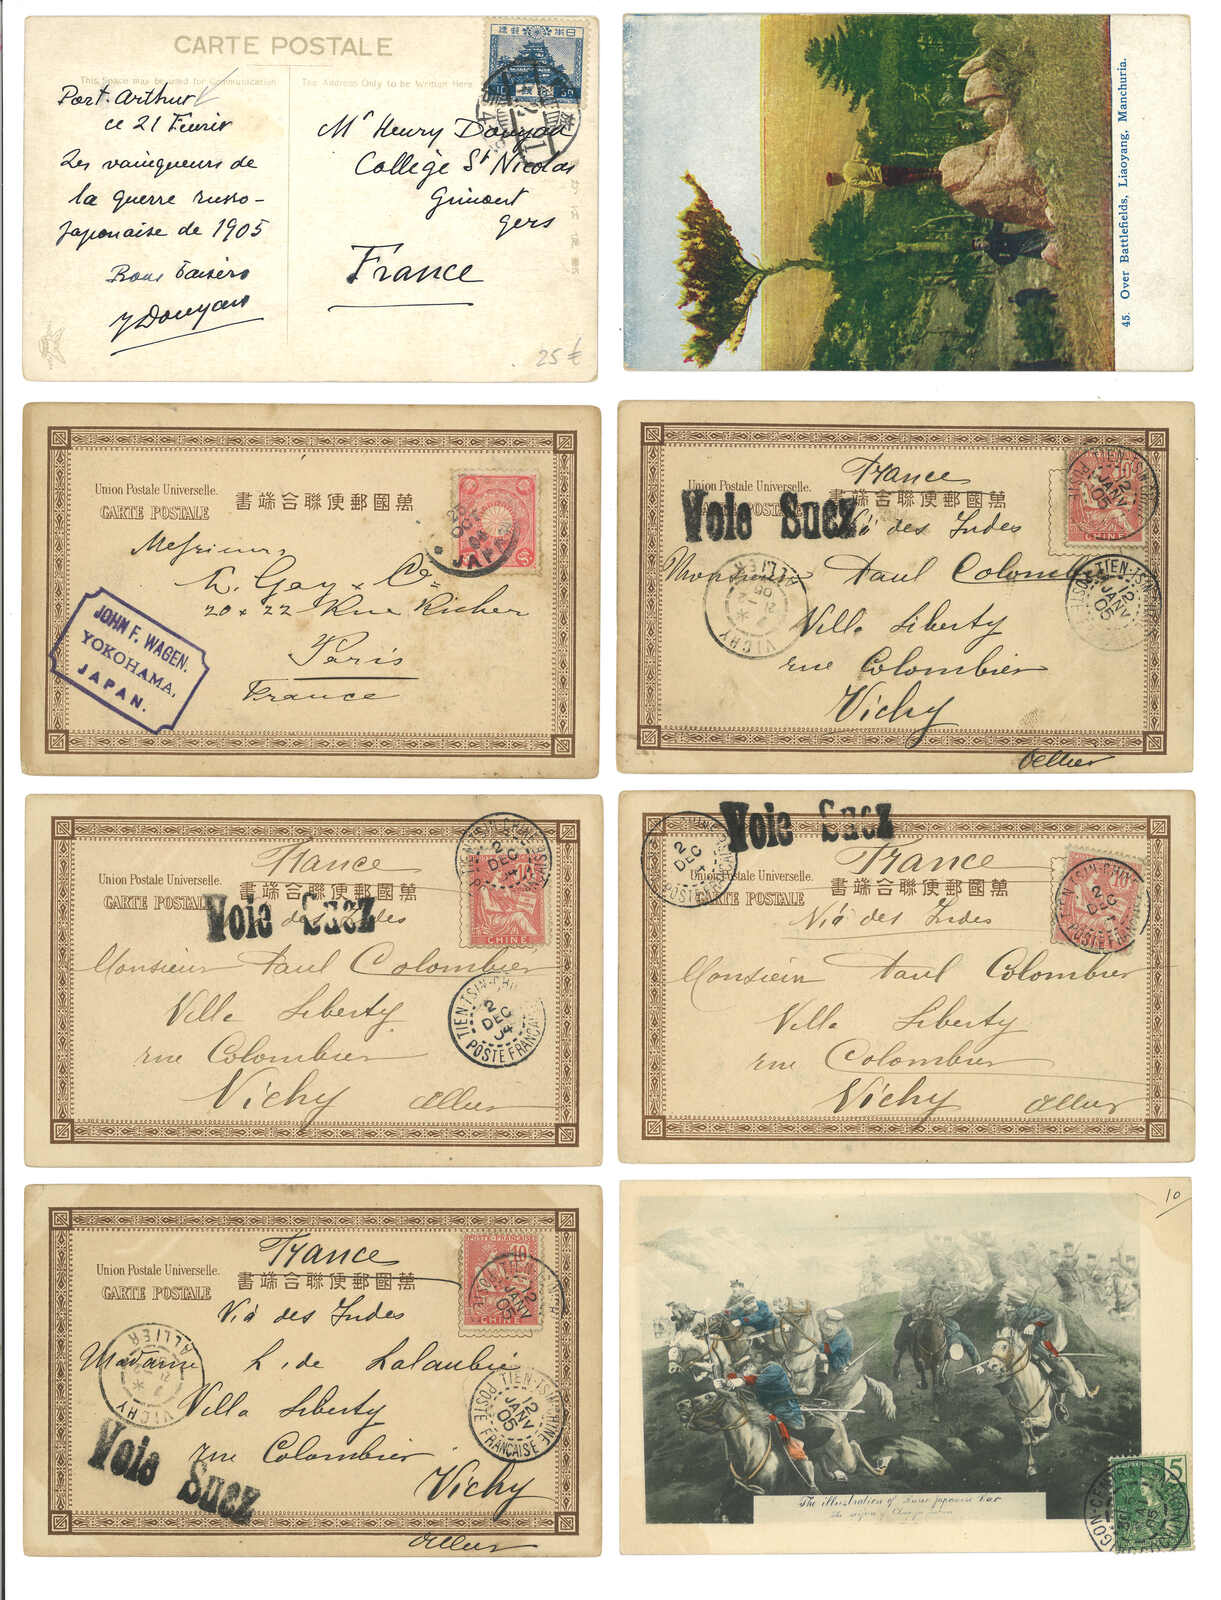 CARTE POSTALE
This Space may be used for Communication
The Address Only to be Written Here
日本郵便
10
Port. Arthur
ce 21 Fevrier
Les vainqueurs de
la guerre russo-
japonaise de 1905
Bons Baisers
Y Douyau
Mr Henry Douyau
Collège St Nicolas
Gimont
Gers
France
25 €
45. Over Battlefields, Liaoyang, Manchuria.
Union Postale Universelle.
CARTE POSTALE
書端合聯便郵國萬
Messieurs
Gay & Co
20 & 22 Rue Richer
Paris
France
JOHN F. WAGEN.
YOKOHAMA,
JAPAN.
JAPAN
Union Postale Universelle.
CARTE POSTALE
書端合聯便郵國萬
France
Voie Suez
Via des Indes
Monsieur Paul Colombier
Villa Liberty
rue Colombier
Vichy
Allier
10
CHINE
TIEN-TSIN-CHINE
12
JANV
05
TIEN-TSIN-CHINE
POSTE
12
JANV
05
VICHY
ALLIER
Union Postale Universelle.
CARTE POSTALE
書端合聯便郵國萬
France
Voie Suez
des Indes
Monsieur Paul Colombier
Villa Liberty
rue Colombier
Vichy Allier
10
CHINE
TIEN-TSIN-CHINE
2
DEC
04
TIEN-TSIN-CHINE
2
DEC
04
POSTE FRANÇAISE
Voie Suez
Union Postale Universelle.
CARTE POSTALE
書端合聯便郵國萬
France
Via des Indes
Monsieur Paul Colombier
Villa Liberty
rue Colombier
Vichy Allier
CHINE
2
DEC
POSTE FRANÇAISE
10
TIEN-TSIN-CHINE
2
DEC
POSTE FRANÇAISE
Union Postale Universelle.
CARTE POSTALE
書端合聯便郵國萬
France
Via des Indes
Madame L. de Lalaubie
Villa Liberty
rue Colombier
Vichy
Allier
Voie Suez
10
CHINE
TIEN-TSIN
12
JANV
05
TIEN-TSIN-CHINE
12
JANV
05
POSTE FRANÇAISE
VICHY
ALLIER
10
The illustration of Russo Japanese War
5